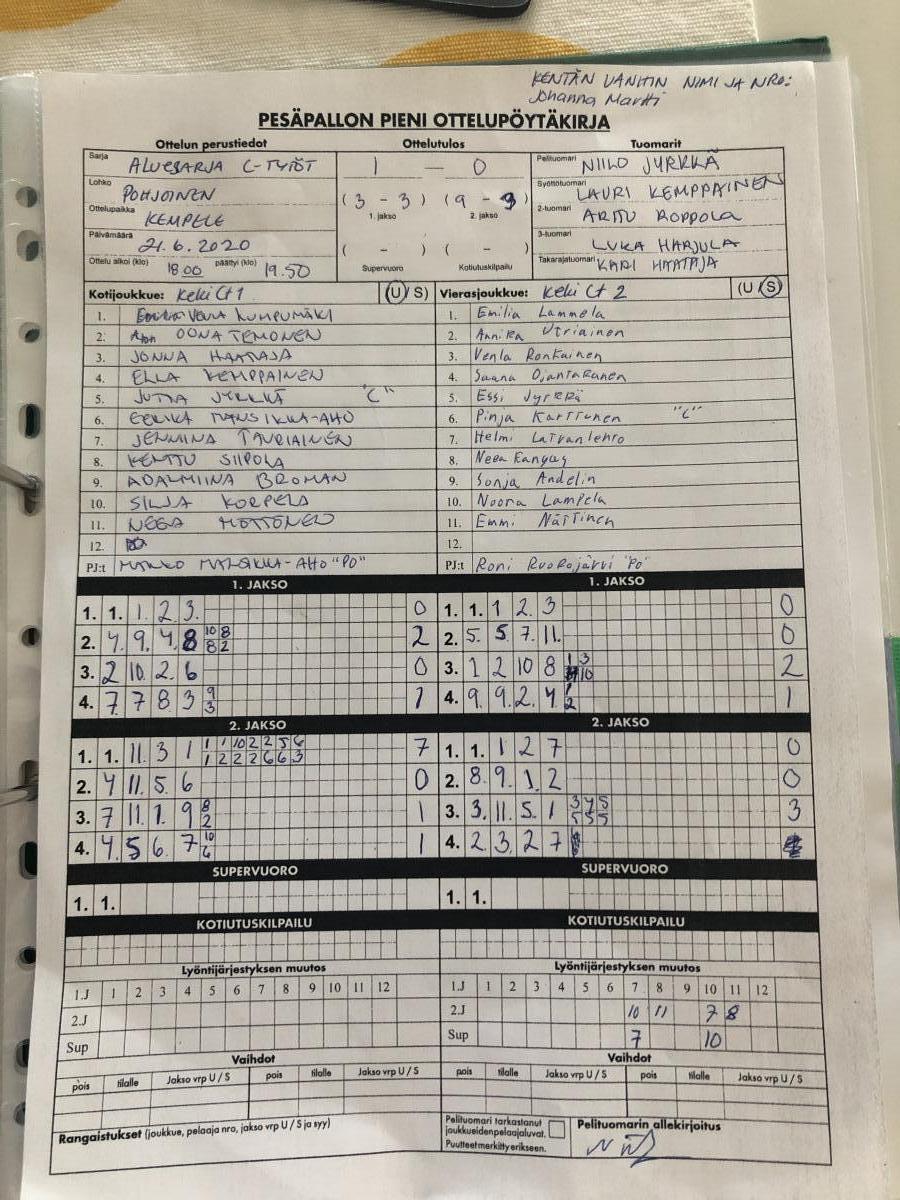 KENTÄN VANHIN NIMI JA NRO:
Johanna Martti
PESÄPALLON PIENI OTTELUPÖYTÄKIRJA
Ottelun perustiedot Ottelutulos Tuomarit
Sarja ALUESARJA C-TYTÖT 1 — 0 Pelituomari NIILO JYRKKÄ
Lohko POHJOINEN (3 - 3) (9 - 3) Syöttötuomari LAURI KEMPPAINEN
Ottelupaikka KEMPELE 1. jakso 2. jakso 2-tuomari ROPPOLA
Päivämäärä 21.6.2020 ( - ) ( - ) 3-tuomari LUKA HARJULA
Ottelu alkoi (klo) 18.00 päättyi (klo) 19.50 Supervuoro Kotiutuskilpailu Takarajatuomari KARI HAATAJA
Kotijoukkue: KeKi Ct 1 (U / S) Vierasjoukkue: KeKi Ct 2 (U / S)
1. KUMPUMÄKI 1. Emilia Lammela
2. OONA TEMONEN 2. Annika Utriainen
3. JONNA HAATAJA 3. Venla Ronkainen
4. ELLA KEMPPAINEN 4. Saana Ojantakanen
5. JUTTA JYRKKÄ "C" 5. Essi Jyrkkä
6. EERIKA MANSIKKA-AHO 6. Pinja Karttunen "C"
7. JENMINA TAURIAINEN 7. Helmi Latvanlehto
8. KERTTU SIIPOLA 8. Neea Kangas
9. ADALMIINA BROMAN 9. Sonja Andelin
10. SILJA KORPELA 10. Noora Lampela
11. NEEA MÖTTÖNEN 11. Emmi Nättinen
12. 12.
PJ:t MARKO MANSIKKA-AHO "PO" PJ:t Roni Ruokojärvi "PO"
1. JAKSO 1. JAKSO
1. 1. 1. 2. 3. 0 1. 1. 1 2. 3 0
2. 4. 9. 4. 8 10 8 2 2. 5. 5 7. 11. 0
8 2
3. 2 10. 2. 6 0 3. 1 2 10 8 1 3 2
10
4. 7 7 8 3 9 1 4. 9. 9. 2. 4. 1 1
3 2
2. JAKSO 2. JAKSO
1. 1. 11. 3 1 1 1 10 2 2 5 6 7 1. 1. 1 2 7 0
1 2 2 2 6 6 3
2. 4 11. 5. 6 0 2. 8. 9. 1. 2 0
3. 7 11. 1. 9 8 1 3. 3. 11. 5. 1 3 4 5 3
2 5 5 5
4. 4. 5 6. 7 10 1 4. 2. 3. 2 7
6
SUPERVUORO SUPERVUORO
1. 1. 1. 1.
KOTIUTUSKILPAILU KOTIUTUSKILPAILU
Lyöntijärjestyksen muutos Lyöntijärjestyksen muutos
1.J 1 2 3 4 5 6 7 8 9 10 11 12 1.J 1 2 3 4 5 6 7 8 9 10 11 12
2.J 2.J 10 11 7 8
Sup Sup 7 10
Vaihdot Vaihdot
pois tilalle Jakso vrp U / S pois tilalle Jakso vrp U / S pois tilalle Jakso vrp U / S pois tilalle Jakso vrp U / S
Rangaistukset (joukkue, pelaaja nro, jakso vrp U / S ja syy) Pelituomari tarkastanut joukkueiden pelaajaluvat. Puutteet merkitty erikseen. Pelituomarin allekirjoitus